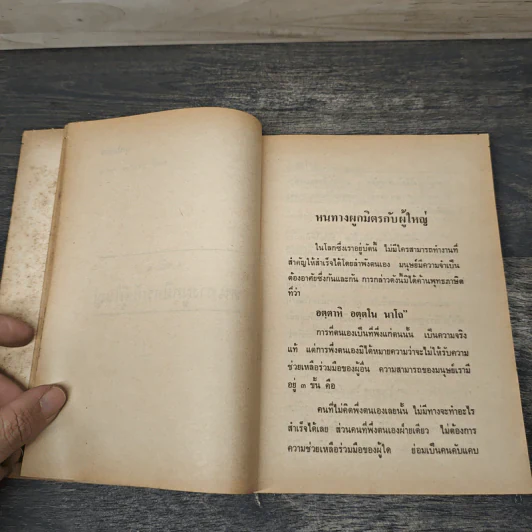 หนทางผูกมิตรกับผู้ใหญ่
ในโลกซึ่งเราอยู่บัดนี้ ไม่มีใครสามารถทำงานที่
สำคัญให้สำเร็จได้โดยลำพังตนเอง มนุษย์มีความจำเป็น
ต้องอาศัยซึ่งกันและกัน การกล่าวดังนี้มิได้ค้านพุทธภาษิต
ที่ว่า
อตฺตาหิ อตฺตโน นาโถ"
การที่ตนเองเป็นที่พึ่งแก่ตนนั้น เป็นความจริง
แท้ แต่การพึ่งตนเองมิได้หมายความว่าจะไม่ได้รับความ
ช่วยเหลือร่วมมือของผู้อื่น ความสามารถของมนุษย์เรามี
อยู่ ๓ ชั้น คือ
คนที่ไม่คิดพึ่งตนเองเลยนั้น ไม่มีทางจะทำอะไร
สำเร็จได้เลย ส่วนคนที่พึ่งตนเองฝ่ายเดียว ไม่ต้องการ
ความช่วยเหลือร่วมมือของผู้ใด ย่อมเป็นคนคับแคบ